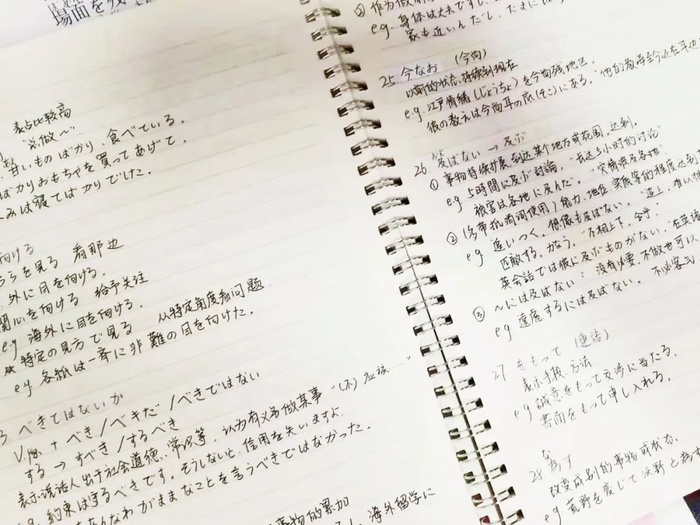 場面を
表占比较高
"只做~"
甘いものばかり、食べている。
ばかりおもちゃを買ってあげて、
みは寝てばかりでした。
向ける
らを見る 看那边
外に目を向ける。
関心を向ける 给予关注
eg 海外に目を向ける。
特定の見方で見る 从特定角度看问题
eg 各紙は一斉に非難の目を向けた。
べきではないか
V原 + べき/べきだ/べきではない
する → すべき/するべき
表示说话人出于社会道德、常识等,认为有义务做某事 "(不)应该……"
約束は守るべきです。もうしないと、信用を失いますよ。
なんなわがままなことを言うべきではなかった。
事物的累加
海外留学に
eg. 身体は大丈夫ですし、
家も近いんだし、たまには
25. 今なお (今尚)
以前的状态,持续到现在
eg. 江戸情緒(じょうちょ)を今尚残地区。
彼の教えは今尚耳の底(そこ)にある。
26. 及ばない → 及ぶ
① 事物持续扩展,到达某个地方或范围,达到,
eg 5時間に及ぶ討論。"长达5小时的讨论"
被害は各地に及んだ。"灾情波及各地"
② (多带抗否词使用) 能力、地位、实施等的程度
eg 追いつく。想像も及ばない。
匹敵する、かなう。
英会話では彼に及ぶものがない。
③ ~には及ばない:没有必要,不做也可以
eg 遠慮するには及ばない。
27 をもって (連語)
表示手段、方法
eg 誠意をもって交渉に当たる。
書面をもって申し入れる。
な
28 為す
改变成别的事物或状态。
eg 荒野を変じて沃野と為す